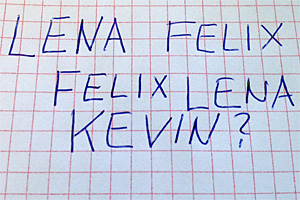 LENA FELIX
FELIX LENA
KEVIN?